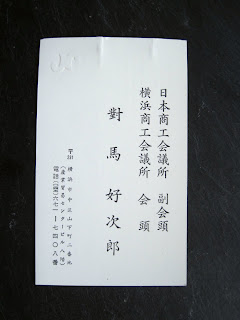 日本商工会議所 副会頭
横浜商工会議所 会頭
對馬好次郎
〒231 横浜市中区山下町二番地
(産業貿易センタービル八階)
電話(〇四五)六七一―七四〇八番